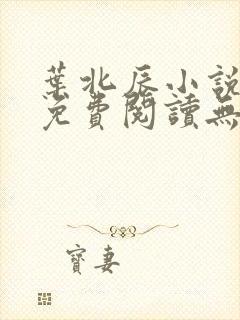 葉北辰小說
免費閱讀無
寶妻